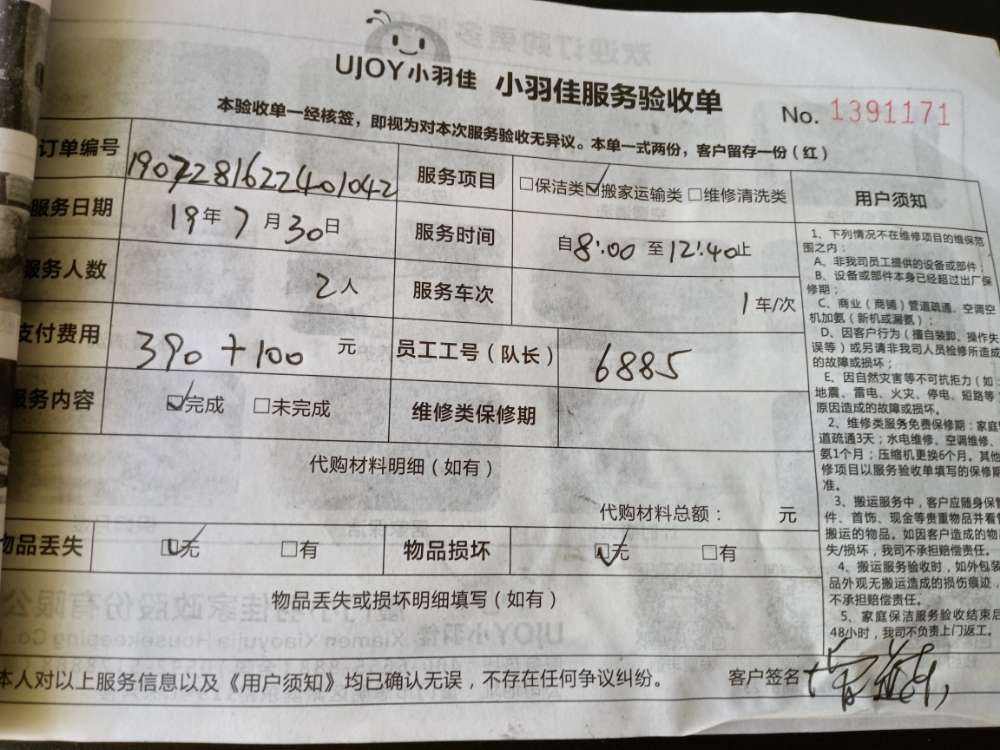 UJOY小羽佳 小羽佳服务验收单
No. 1391171
本验收单一经核签，即视为对本次服务验收无异议。本单一式两份，客户留存一份（红）
订单编号 1907281622401042 服务项目 □保洁类 ☑搬家运输类 □维修清洗类
服务日期 19年7月30日 服务时间 自8:00至12:40止
服务人数 2人 服务车次 1车/次
支付费用 390+100 元 员工工号（队长） 6885
服务内容 ☑完成 □未完成 维修类保修期
代购材料明细（如有）
代购材料总额： 元
物品丢失 ☑无 □有 物品损坏 ☑无 □有
物品丢失或损坏明细填写（如有）
本人对以上服务信息以及《用户须知》均已确认无误，不存在任何争议纠纷。 客户签名
用户须知
1、下列情况不在维修项目的维保范
围之内：
A、非我司员工提供的设备或部件；
B、设备或部件本身已经超过出厂保
修期；
C、商业（商铺）管道疏通、空调空
机加氨（新机或漏氨）；
D、因客户行为（擅自装卸、操作失
误等）或另请非我司人员检修所造成
的故障或损坏；
E、因自然灾害等不可抗拒力（如
地震、雷电、火灾、停电、短路等
原因造成的故障或损坏。
2、维修类服务免费保修期：家庭
道疏通3天；水电维修、空调维修、
氨1个月；压缩机更换6个月。其他
修项目以服务验收单填写的保修期
准。
3、搬运服务中，客户应随身保管
件、首饰、现金等贵重物品并看
搬运的物品。如因客户造成的物品
失/损坏，我司不承担赔偿责任。
4、搬运服务验收时，如外包装
品外观无搬运造成的损伤痕迹，
不承担赔偿责任。
5、家庭保洁服务验收结束后
48小时，我司不负责上门返工。